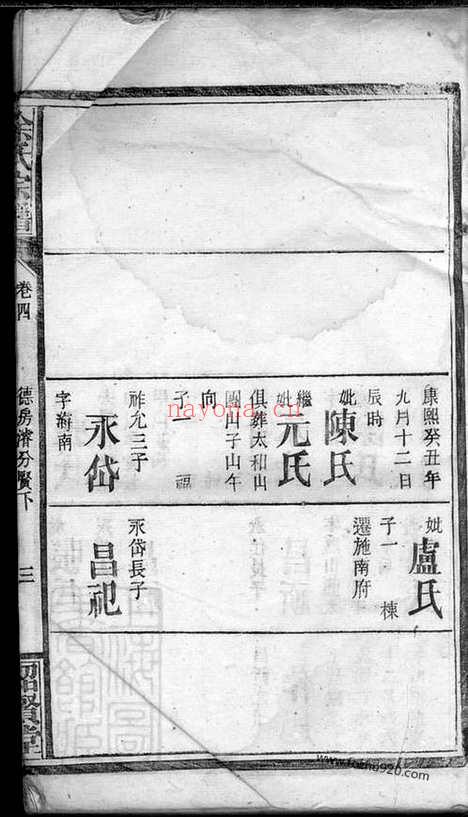 康熙癸丑年
九月十二日
辰時
妣陳氏
繼妣元氏
俱葬太和山
團山子山午
向
子一 福
祚允三子
永岱
字海南
妣盧氏
子一 棟
遷施南府
永岱長子
昌祀
氏宗譜
卷四
德房濬分賢下
三
紹賢堂
nayona.cn
www.fozhu920.com